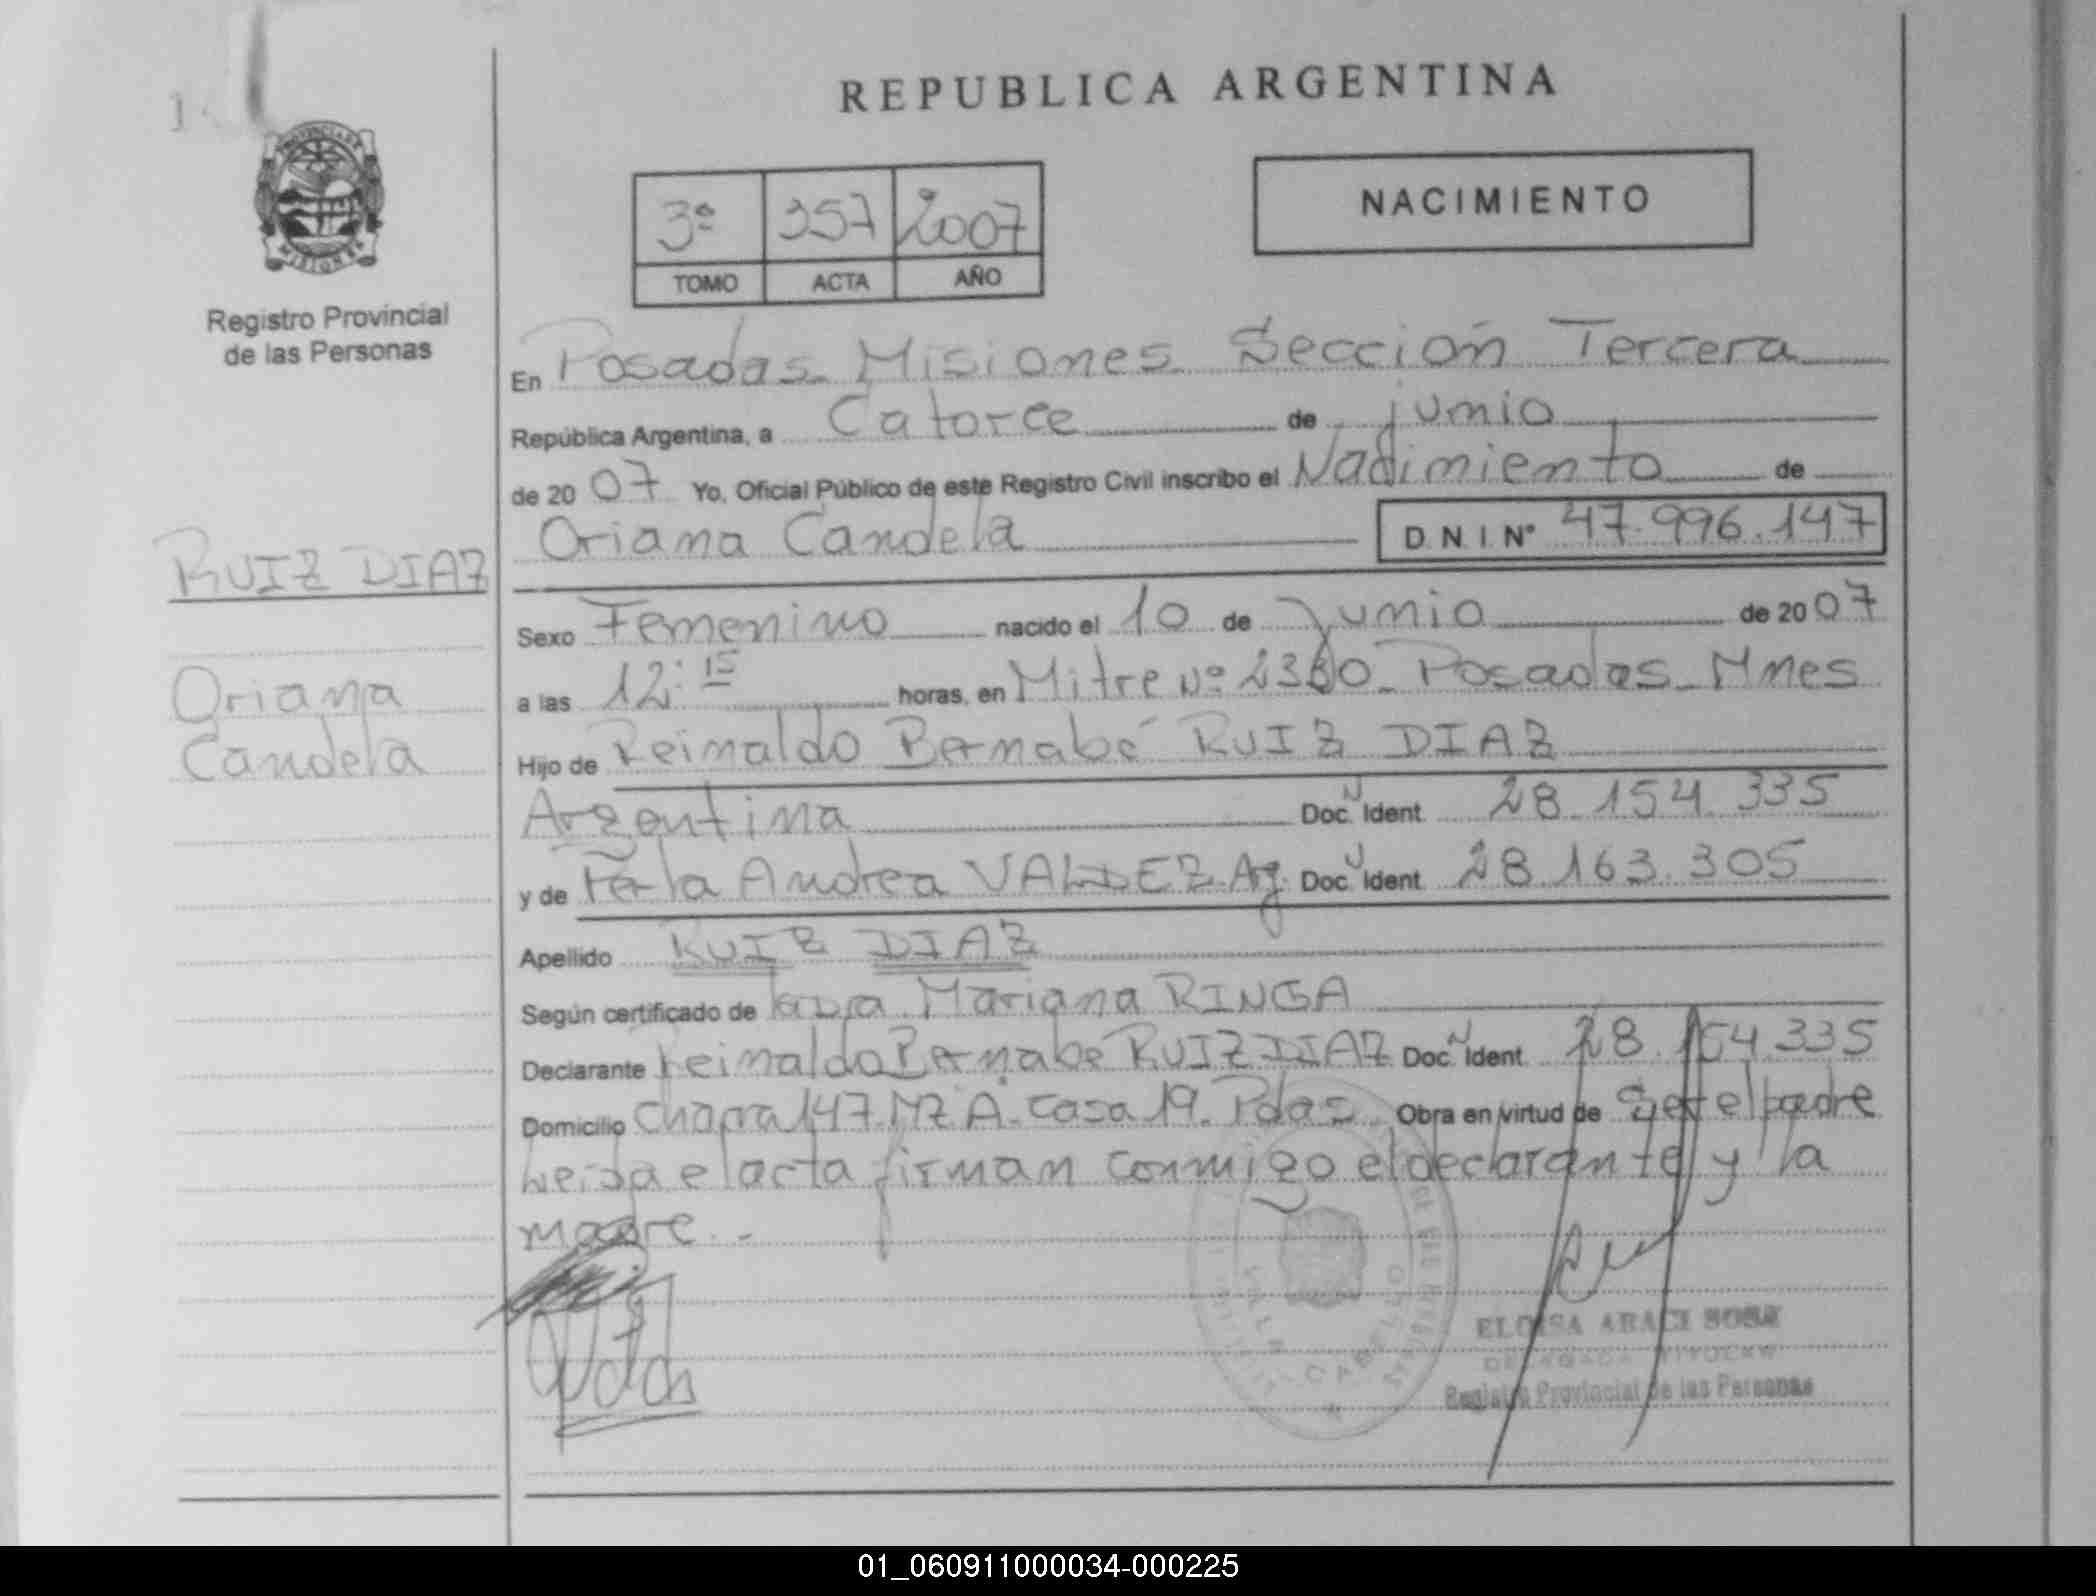 REPUBLICA ARGENTINA
PROVINCIA DE
MISIONES
Registro Provincial
de las Personas
3º 357 2007
TOMO ACTA AÑO
NACIMIENTO
En Posadas Misiones Sección Tercera
República Argentina, a Catorce de junio
de 2007 Yo, Oficial Público de este Registro Civil inscribo el Nacimiento de
Oriana Candela D.N.I. Nº 47.996.147
RUIZ DIAZ
Oriana
Candela
Sexo Femenino nacido el 10 de Junio de 2007
a las 12:15 horas, en Mitre Nº Posadas Mnes
Hijo de Reinaldo Bernabé RUIZ DIAZ
Argentina Doc. Ident 28.154.335
y de Perla Andrea VALDEZ Arg. Doc. Ident 28.163.305
Apellido RUIZ DIAZ
Según certificado de Mariana RINGA
Declarante Reinaldo Bernabé RUIZ DIAZ Doc. Ident 28.154.335
Domicilio Chacra 147 MZ A Casa 19 Pdas Obra en virtud de Ser el padre
Leida el acta firman conmigo el declarante y la
madre.-
VILLA CABELLO
ELOISA ARACI SOSA
DELEGADA TITULAR
Registro Provincial de las Personas
01_060911000034-000225